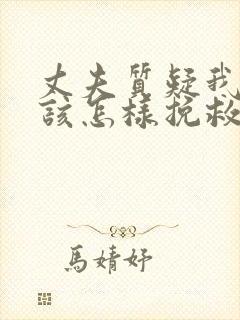 丈夫質疑我
該怎樣挽救
馬婧妤